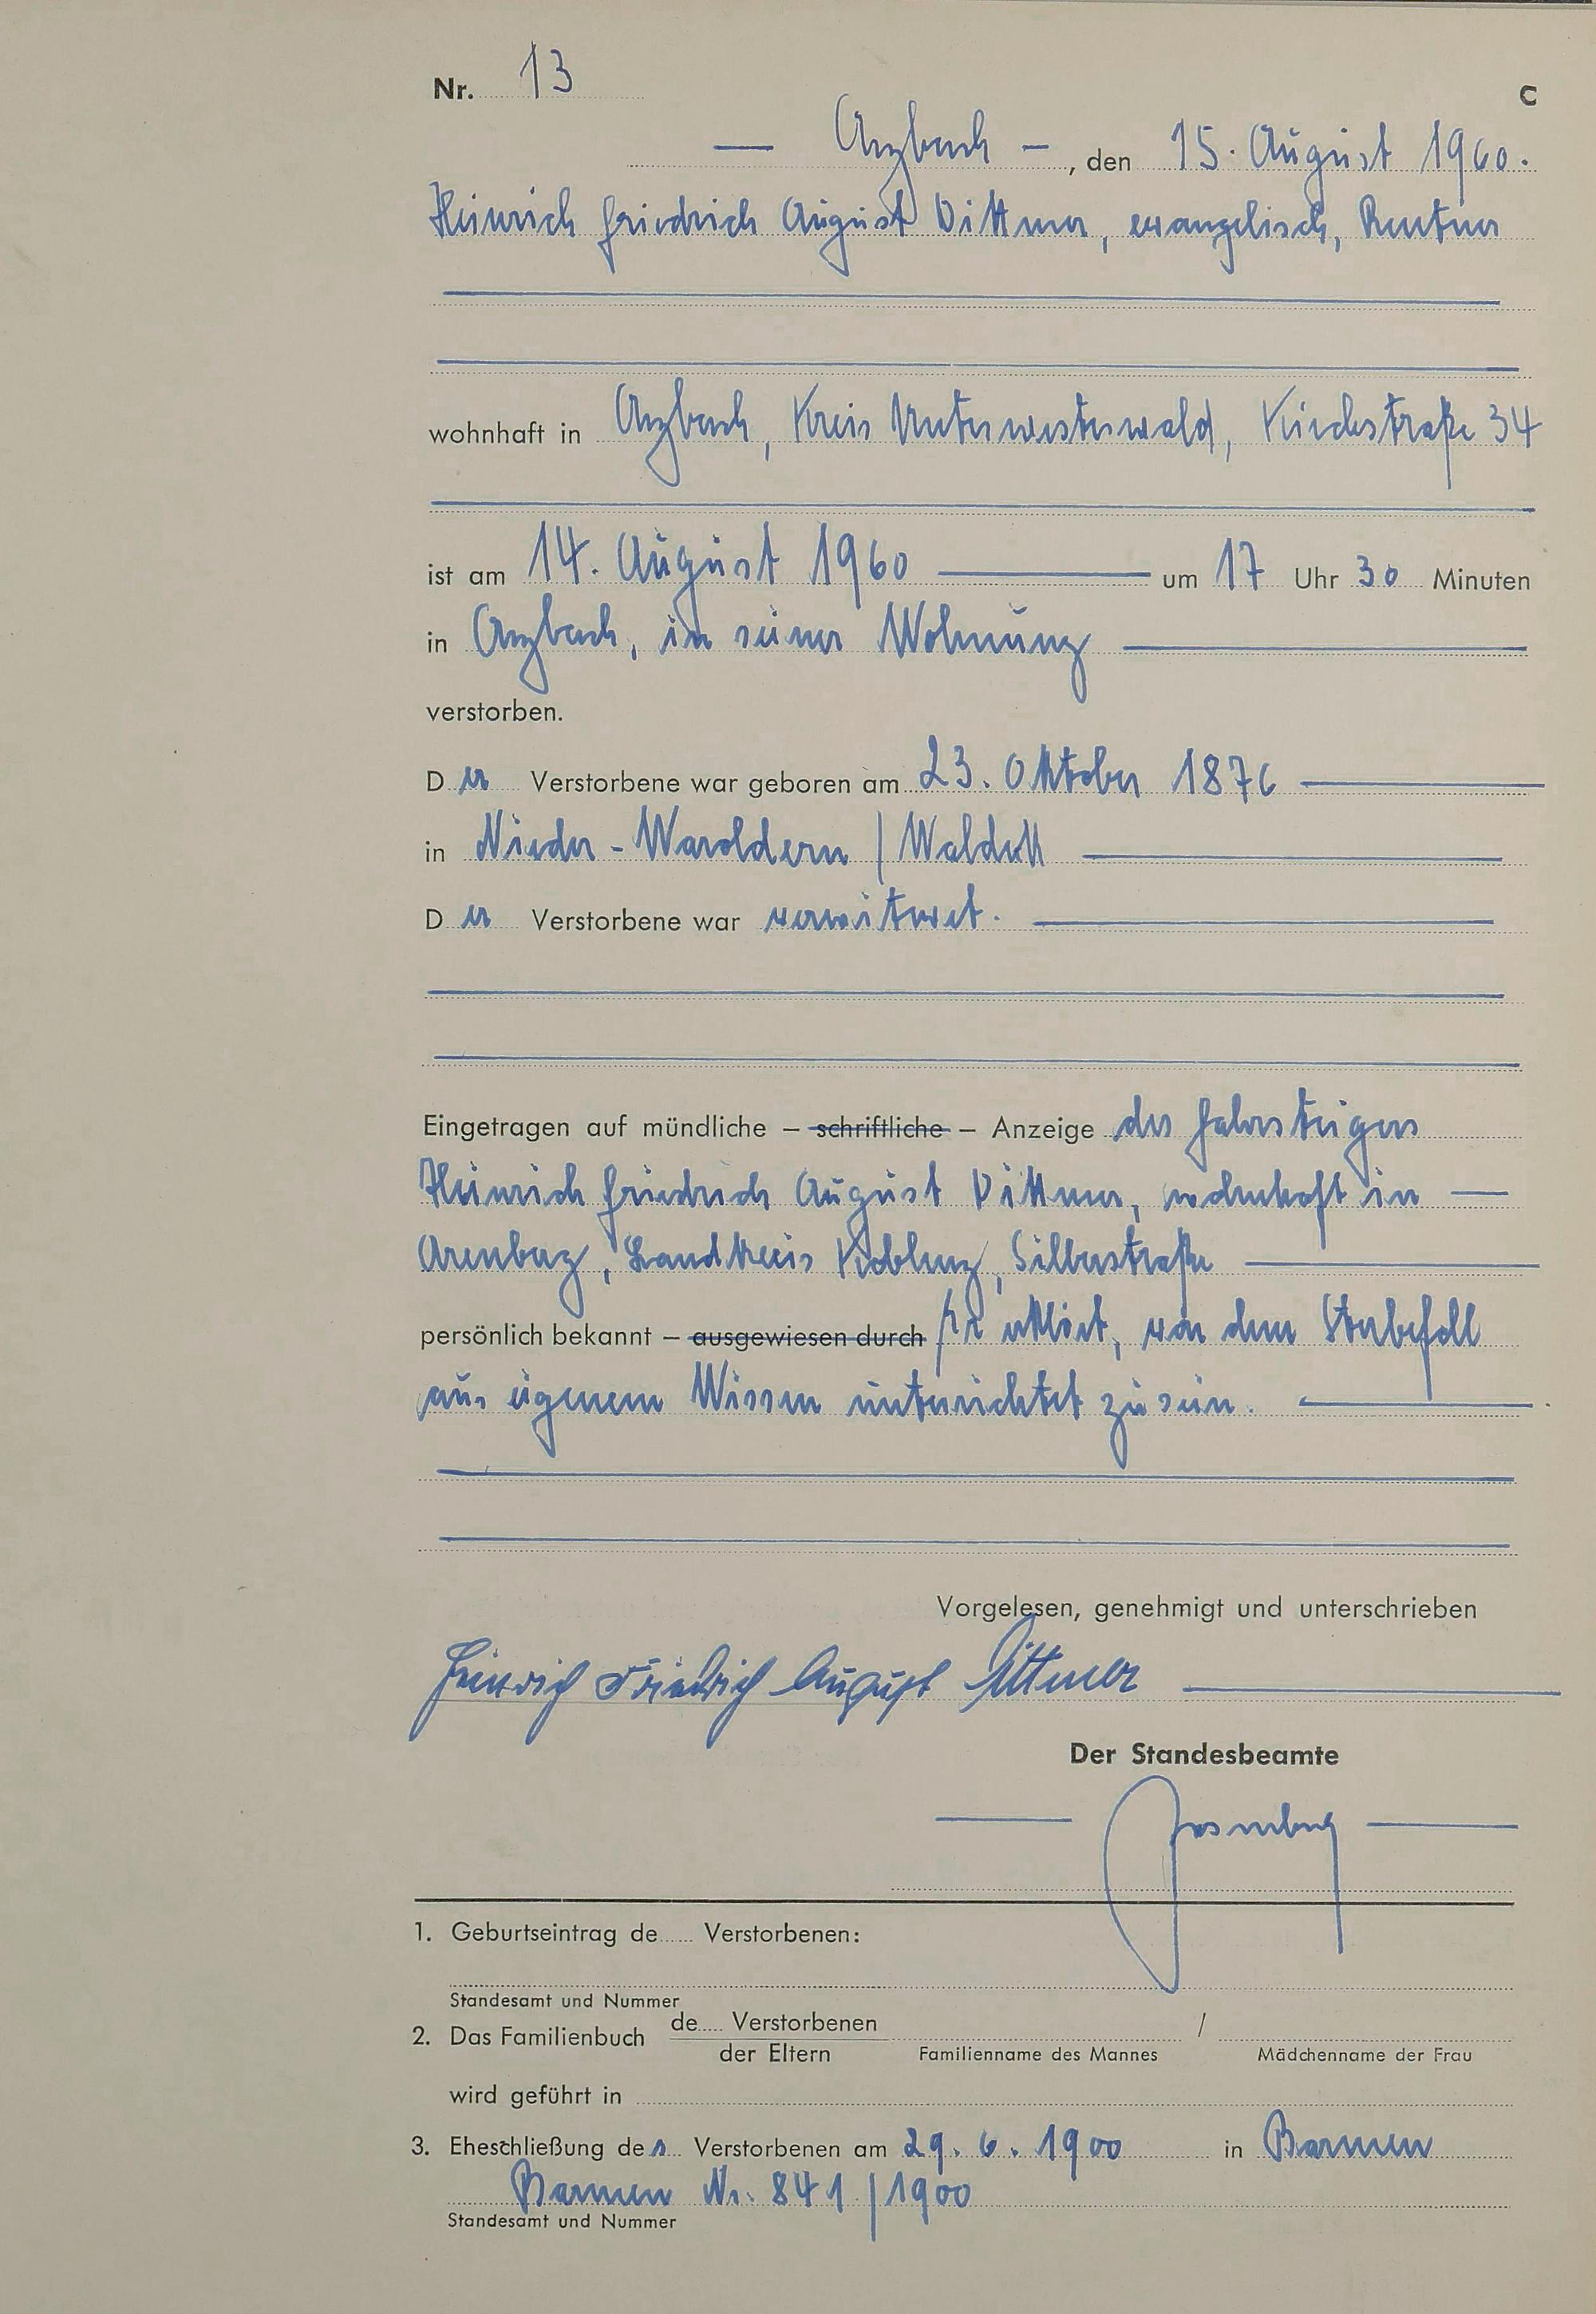 Nr. 13
C
— Arzbach —, den 15. August 1960.
Heinrich Friedrich August Dittmer, evangelisch, Rentner
wohnhaft in Arzbach, Kreis Unterwesterwald, Kirchstraße 34
ist am 14. August 1960 um 17 Uhr 30 Minuten
in Arzbach, in seiner Wohnung
verstorben.
Der Verstorbene war geboren am 23. Oktober 1876
in Nieder-Waroldern / Waldeck
Der Verstorbene war verwitwet.
Eingetragen auf mündliche – schriftliche – Anzeige des Fahrsteigers
Heinrich Friedrich August Dittmer, wohnhaft in —
Arenberg, Landkreis Koblenz, Silberstraße
persönlich bekannt – ausgewiesen durch Er erklärt, von dem Sterbefall
aus eigenem Wissen unterrichtet zu sein.
Vorgelesen, genehmigt und unterschrieben
Heinrich Friedrich August Dittmer
Der Standesbeamte
1. Geburtseintrag de Verstorbenen:
Standesamt und Nummer
2. Das Familienbuch de Verstorbenen /
der Eltern Familienname des Mannes Mädchenname der Frau
wird geführt in
3. Eheschließung des Verstorbenen am 29. 6. 1900 in Barmen
Barmen Nr. 841 / 1900
Standesamt und Nummer